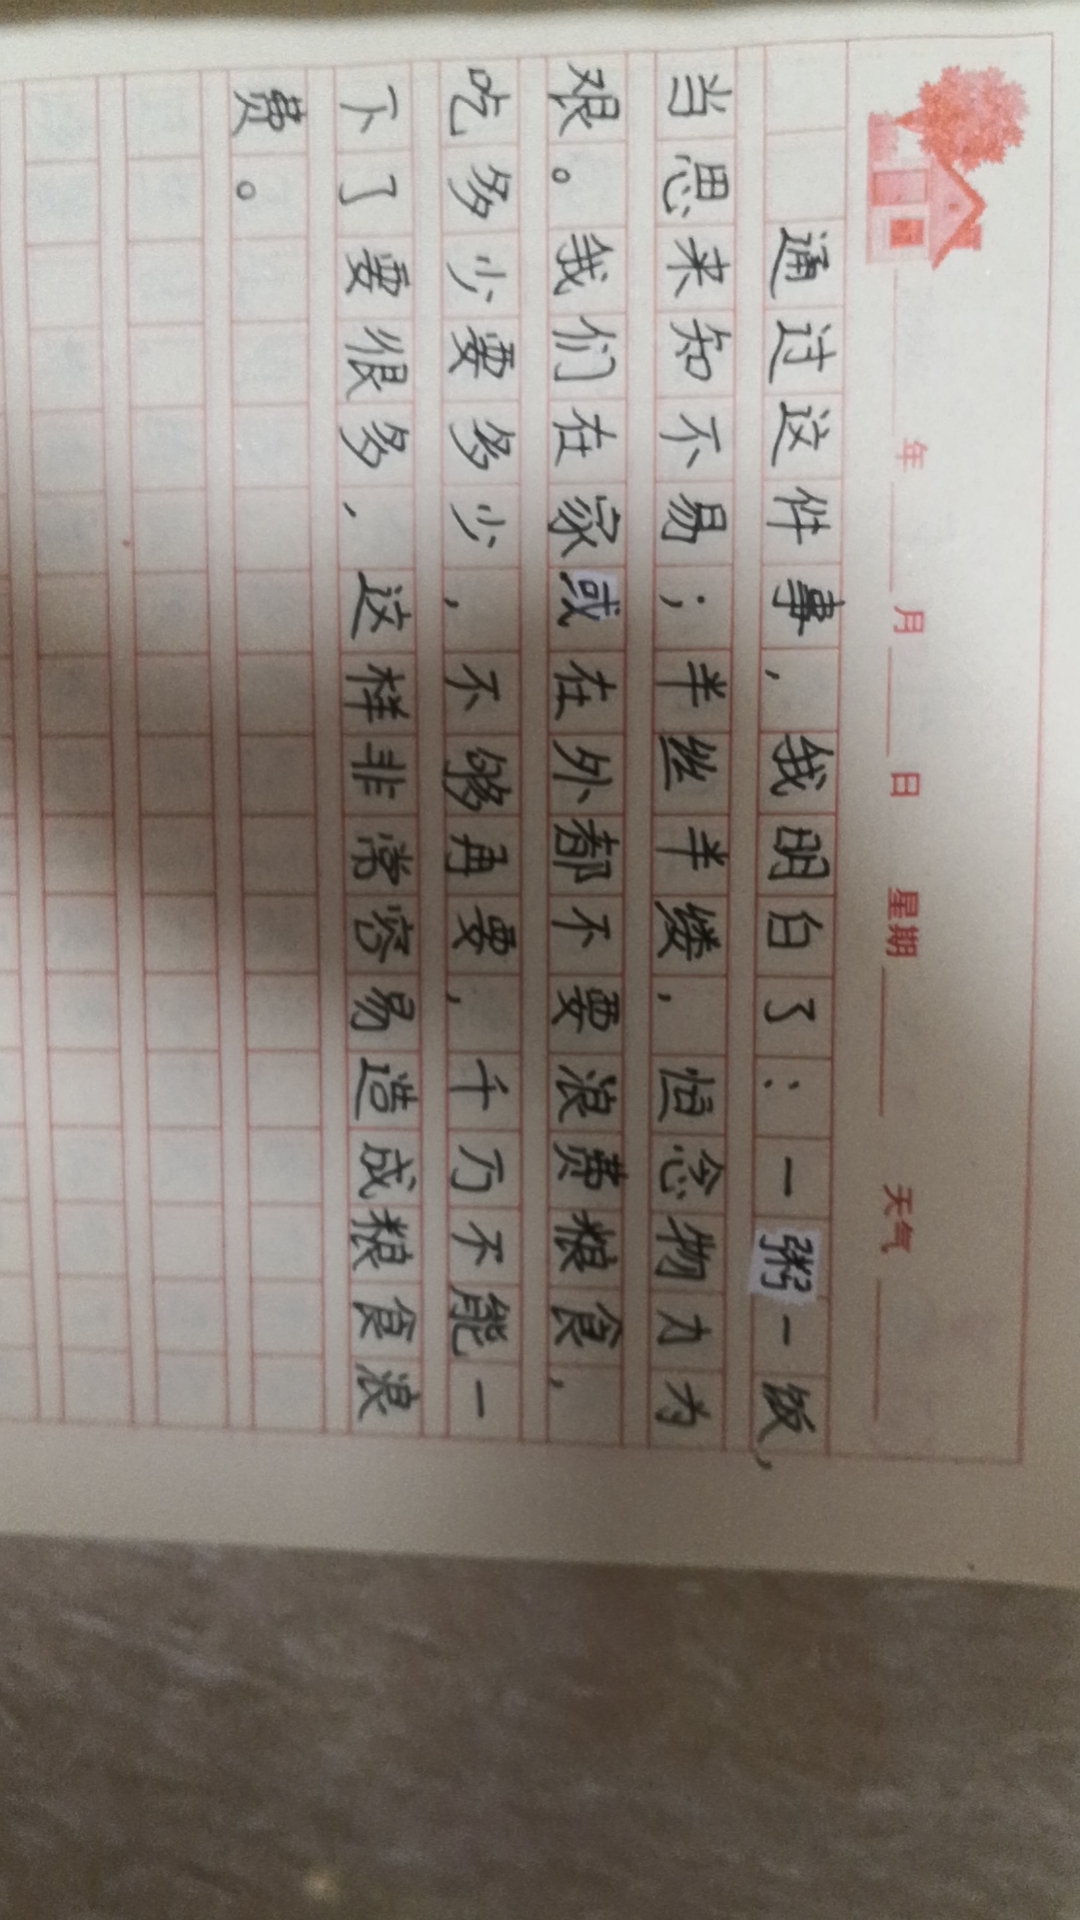 年 月 日 星期 天气
通过这件事，我明白了：一粥一饭，
当思来知不易；半丝半缕，恒念物力为
艰。我们在家或在外都不要浪费粮食，
吃多少要多少，不够再要，千万不能一
下了要很多，这样非常容易造成粮食浪
费。